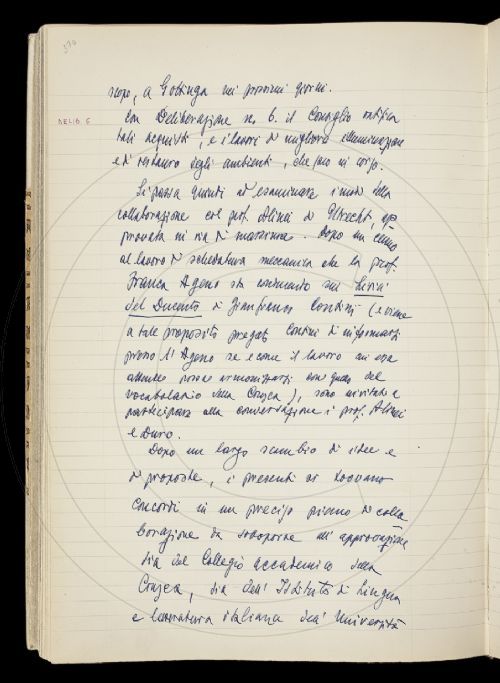 scopo, a Gottinga nei prossimi giorni.
DELIB. 6
Con Deliberazione n. 6. il Consiglio ratifica
tali acquisti, e i lavori di migliore illuminazione
e di restauro degli ambienti, che sono in corso.
Si passa quindi ad esaminare i modi della
collaborazione col prof. Alinei di Utrecht, ap-
provata in via di massima. Dopo un cenno
al lavoro di schedatura meccanica che la prof.
Franca Ageno sta conducendo sui Lirici
del Duecento di Gianfranco Contini (e viene
a tale proposito pregato Contini di informarsi
presso l'Ageno se e come il lavoro in esa
armonizzarsi con quello del
vocabolario della Crusca), sono invitati a
partecipare alla conversazione i prof. Alinei
e Duro.
Dopo un largo scambio di idee e
di proposte, i presenti si trovano
concordi in un preciso piano di colla
borazione da sottoporre all'approvazione
sia del Collegio accademico della
Crusca, sia dell'Istituto di Lingua
e letteratura italiana dell'Università